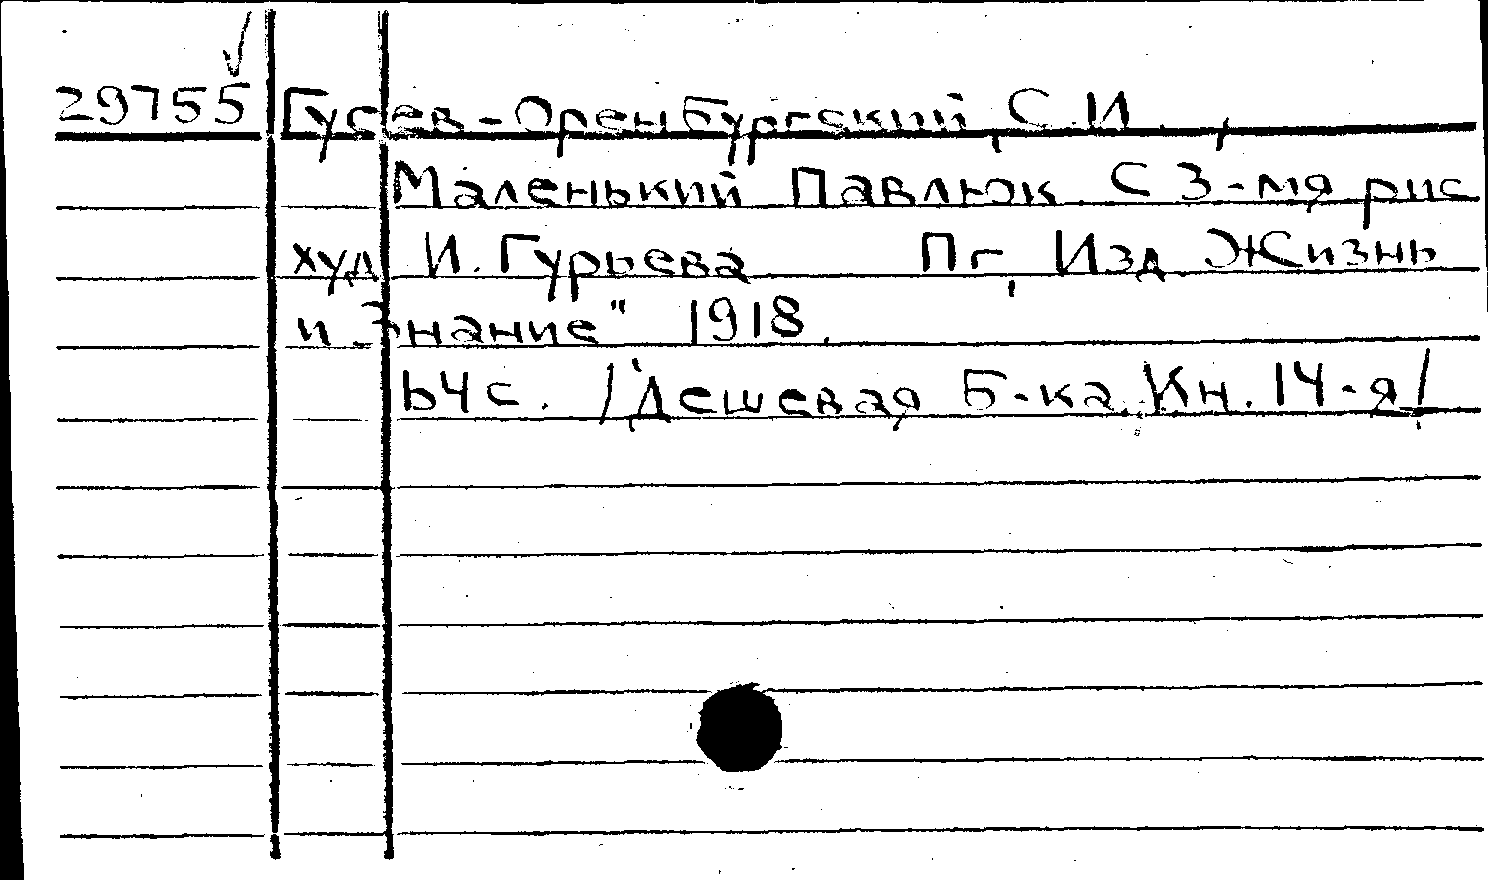 29755 Гусев-Оренбургский, С.И.,
Маленький Павлюк. С 3-мя рис
худ И. Гурьева Пг, Изд Жизнь
и Знание" 1918.
64 с. /Дешевая Б-ка. Кн. 14-я/